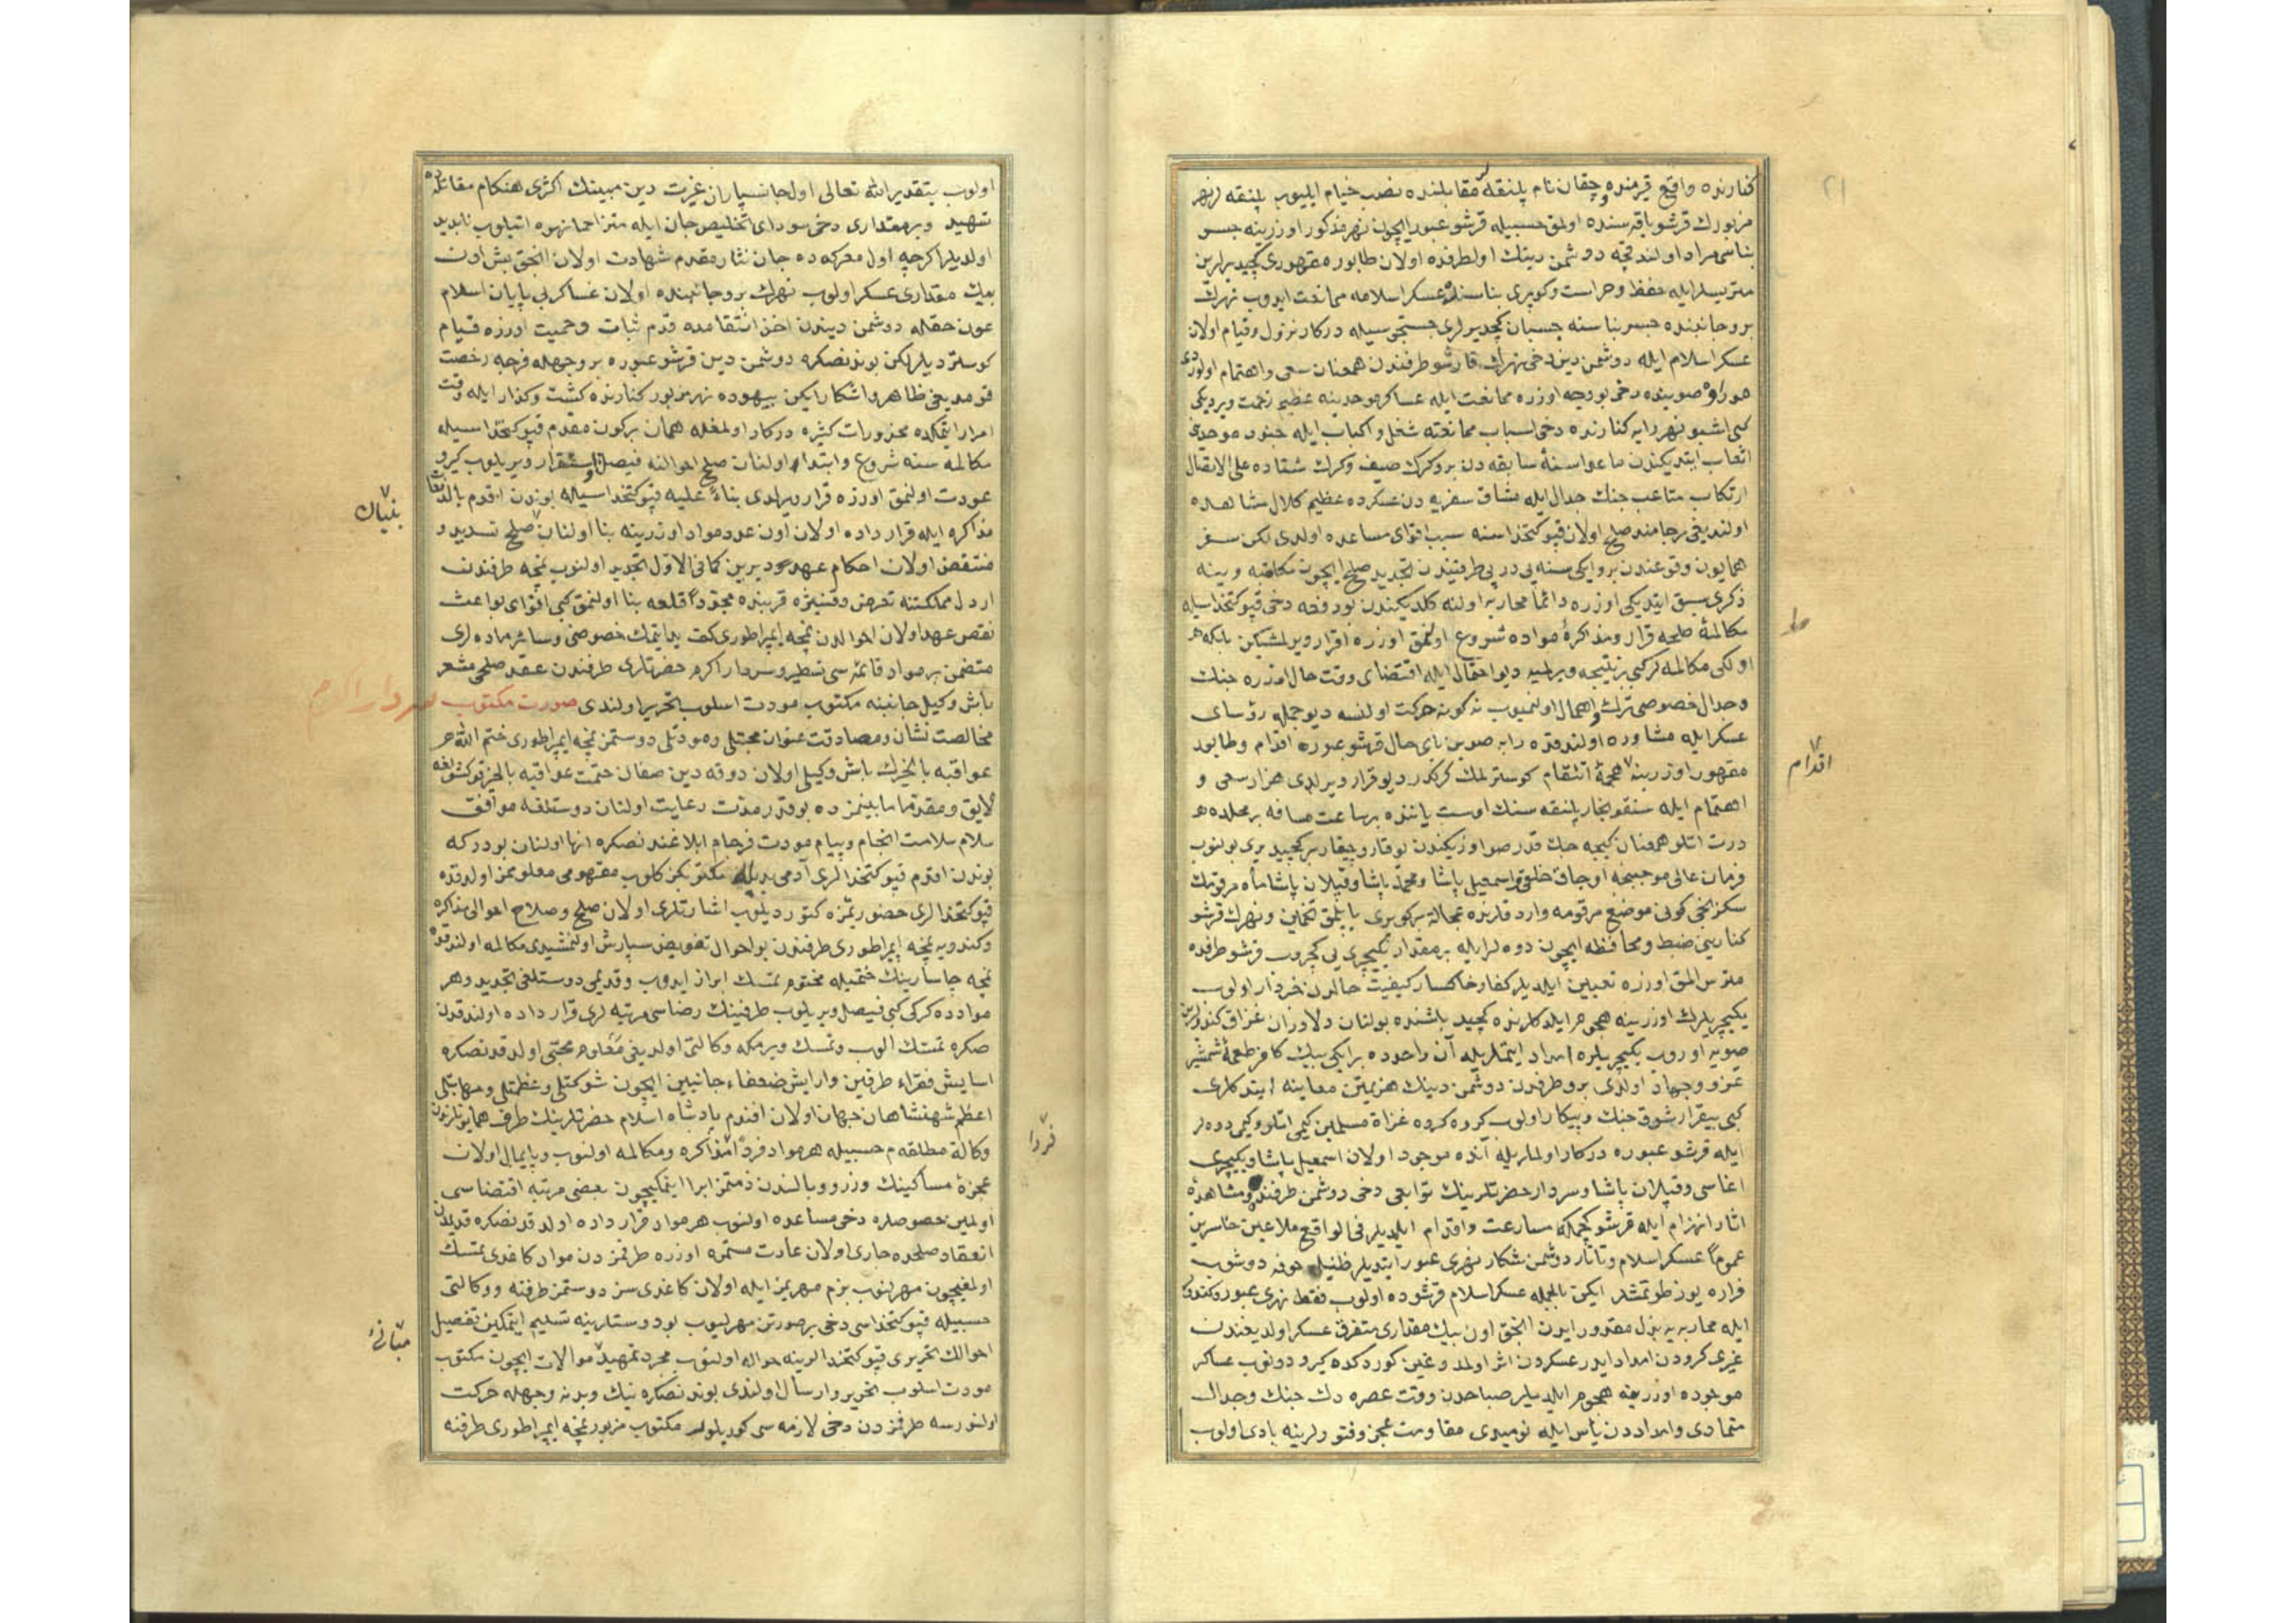 ٢١
كنارنده واقع قرمنده و چقان نام پلنقه مقابلنده نصب خيام ايليوب پلنقه لر نهر
مزبورك قرشو ياقه سنده اولمق حسبيله قرشو عبور ايچون نهر مذكور اوزرينه جسر
بناسى مراد اولندقچه دوشمن دينك اولطرفده اولان طابور مقهورى كچيد يرلرين
متريسلر ايله حفظ و حراست و كوپرى بناسنده عسكر اسلامه ممانعت ايدوب نهرك
بر و جانبنده جسر بناسنه چسپان كچيد يرلرى جستجوسيله دركار نزول و قيام اولان
عسكر اسلام ايله دوشمن دين دخى نهرك قارشو طرفندن همعنان سعى و اهتمام اولوردى
صوينده دخى بو وجه اوزره ممانعت ايله عساكر موحدينه عظيم زحمت ويرديكى
كبى اشبو نهر رابه كنارنده دخى اسباب ممانعته شغل و اكباب ايله جنود موحدى
اتعاب ايتديكندن ماعدا سنۀ سابقه دن برو كرك صيف و كرك شتاده على الاتصال
ارتكاب متاعب جنك جدال ايله مشاق سفريه دن عسكرده عظيم كلال مشاهده
اولنديغى رجامند صلح اولان قپوكتخداسنه سبب اقواى مساعده اولدى لكن سفر
همايون وقوعندن برو ايكى سنه يى در پى طرفيندن تجديد صلح ايچون مكاتبه و ينه
ذكرى سبق ايتديكى اوزره دائما محاربه اولنه كلديكندن بو دفعه دخى قپوكتخداسيله
مكالمۀ صلحه قرار و مذاكرۀ مواده شروع اولنمق اوزره قرار ويرلمشيكن بلكه هر
اولكى مكالمه لر كبى بر نتيجه ويرلميه ديو احتمال ايله اقتضاى وقت حال اوزره جنك
و جدال خصوصى ترك و اهمال اولنميوب نه كونه حركت اولنسه ديو جمله رؤساى
عسكر ايله مشاوره اولندقده رابه صوين باى حال قرشو عبوره اقدام و طابور
مقهور اوزرينه هجمۀ انتقام كوسترلمك كركدر ديو قرار ويرلدى هزار سعى و
اهتمام ايله سنقوبخار پلنقه سنك اوست ياننده بر ساعت مسافه بر محلده
درت اتلو همعنان كيجه جك قدر صو اوزيكندن يوقارو چيقار بر كچيد يرى بولنوب
فرمان عالى موجبنجه اوجاق خلقى و اسمعيل پاشا و محمد پاشا و قپلان پاشا ماه مرقومك
سكزنجى كونى موضع مرقومه وارد قلرنده عجالة بر كوپرى ياپلمق تخمين و نهرك قرشو
كنارينى ضبط و محافظه ايچون دوه لر ايله بر مقدار يكيچرى يى كچروب قرشو طرفده
متريس المق اوزره تعيين ايلديلر كفار خاكسار كيفيت حالدن خبردار اولوب
يكيچريلرك اوزرينه هجوم ايلدكلرنده كچيد باشنده بولنان دلاوران غزاق كندولرين
صويه اوروب يكيچريلره امداد ايتملريله آن واحدده بر ايكى بيك كافر طعمۀ شمشير
غزو و جهاد اولدى برو طرفدن دوشمن دينك هزيمتن معاينه ايتدكلرى
كبى بيقرار شوق جنك و پيكار اولوب كروه كروه غزاة مسلمين كيمى اتلو و كيمى دوه لر
ايله قرشو عبوره دركار اولملريله آنده موجود اولان اسمعيل پاشا و يكيچرى
اغاسى و قپلان پاشا و سردار حضرتلرينك توابعى دخى دوشمن طرفنده مشاهدۀ
اثار انهزام ايله قرشو كچمكه مسارعت و اقدام ايلديلر فى الواقع ملاعين خاسرين
عموماً عسكر اسلام و تاتار دوشمن شكار نهرى عبور ايتديلر ظنيله خوفه دوشوب
فراره يوز طوتمشلر ايكن بالجمله عسكر اسلام قرشوده اولوب فقط نهرى عبور و كندولرى
ايله محاربه يه بذل مقدور ايدن انجق اون بيك مقدارى متفرق عسكر اولديغندن
غيرى كرودن امداد ايدر عسكردن اثر اولمدوغين كوردكده كيرو دونوب عساكر
موجوده اوزرينه هجوم ايلديلر صباحدن وقت عصره دك جنك و جدال
متمادى و امداددن يأس ايله نوميدى مقاومت عجز و فتورلرينه بادى اولوب
ط
اقدام
اولوب بتقدير الله تعالى اول جانسپاران غيرت دين مبينك اكثرى هنكام مقاتله ده
شهيد و بر مقدارى دخى سوداى تخليص جان ايله متزاحماً نهره اتيلوب نابديد
اولديلر اكرچه اول معركه ده جان نثار مقدم شهادت اولان انجق بش اون
بيك مقدارى عسكر اولوب نهرك برو جانبنده اولان عساكر بى پايان اسلام
عون حقله دوشمن ديندن اخذ انتقامده قدم ثبات و حميت اوزره قيام
كوستر ديلر لكن بوندنصكره دوشمن دين قرشو عبوره بر وجهله فرجه رخصت
قومديغى ظاهر و اشكار ايكن بيهوده نهر مزبور كنارنده كشت و كذار ايله وقت
امرار ايتمكده محذورات كثيره دركار اولمغله همان بركون مقدم قپوكتخداسيله
مكالمه سنه شروع و ابتدار اولنان صلح احوالنه فيصل و استقرار ويريلوب كيرو
عودت اولنمق اوزره قرار ويرلدى بناءً عليه قپوكتخداسيله بوندن اقدم بالدفعات
مذاكره ايله قرار داده اولان اون عدد مواد اوزرينه بنا اولنان صلح تسديد و
منتقض اولان احكام عهد ديرين كمافى الاول تجديد اولنوب نمچه طرفندن
اردل مملكتنه تعرض و قنيژه قربنده مجدداً قلعه بنا اولنمق كبى اقواى بواعث
نقض عهد اولان احوالدن نمچه ايمپراطورى كف يد ايتمك خصوصنى و سائر ماده لرى
متضمن بر مواد قائمه سى تسطير و سردار اكرم حضرتلرى طرفندن عقد صلحى مشعر
باش وكيل جانبنه مكتوب مودت اسلوب تحرير اولندى صورت مكتوب سردار اكرم
مخالصت نشان و مصادقت عنوان محبتلى و مودتلى دوستمز نمچه ايمپراطورى ختم الله
عواقبه بالخيرك باش وكيلى اولان دوقه دين صغان ختمت عواقبه بالخير
لايق و مقدما مابينمزده بو قدر مدت رعايت اولنان دوستلغه موافق
سلام سلامت انجام و پيام مودت فرجام ابلاغندنصكره انها اولنان بودر كه
بوندن اقدم قپوكتخدالرى آدمى يديله مكتوبكز كلوب مفهومى معلوممز اولدقده
قپوكتخدالرى حضوريمزه كتورديلوب اشارتلرى اولان صلح و صلاح احوالى مذاكره
و كندويه نمچه ايمپراطورى طرفندن بو احوال تفويض و سپارش اولنمشيدى مكالمه اولندقده
نمچه چاسارينك ختميله مختوم تمسك ابراز ايدوب و قديمى دوستلغى تجديد و هر
مواده كركى كبى فيصل ويريلوب طرفينك رضاسى مرتبه لرى قرار داده اولندقدن
صكره تمسك الوب و تمسك ويرمكه وكالتى اولديغى معلوم محبى اولدقدنصكره
اسايش فقراء طرفين و ارايش ضعفاء جانبين ايچون شوكتلى و عظمتلى و مهابتلى
اعظم شهنشاهان جهان اولان افندم پادشاه اسلام حضرتلرينك طرف همايونلرندن
وكالة مطلقه م حسبيله هر مواد فرداً مذاكره و مكالمه اولنوب و پايمال اولان
عجزۀ مساكينك وزر و وبالندن ذمتمز ابرا ايتمكيچون بعضى مرتبه اقتضاسى
اولمين خصوصلره دخى مساعده اولنوب هر مواد قرار داده اولدقدنصكره قديمدن
انعقاد صلحده جارى اولان عادت مستمره اوزره طرفمزدن مواد كاغدى تمسك
اولمغيچون مهرلنوب بزم مهريمز ايله اولان كاغدى سز دوستمز طرفنه و وكالتى
حسبيله قپوكتخداسى دخى بر صورتن مهرليوب بو دوستلرينه تسليم ايتمكين تفصيل
احوالك تحريرى قپوكتخدالرينه حواله اولنوب مجرد تمهيد موالات ايچون مكتوب
مودت اسلوب تحرير و ارسال اولندى بوندنصكره نيك و بد نه وجهله حركت
اولنورسه طرفمزدن دخى لازمه سى كوريلور مكتوب مزبور نمچه ايمپراطورى طرفنه
بنيان
فردا